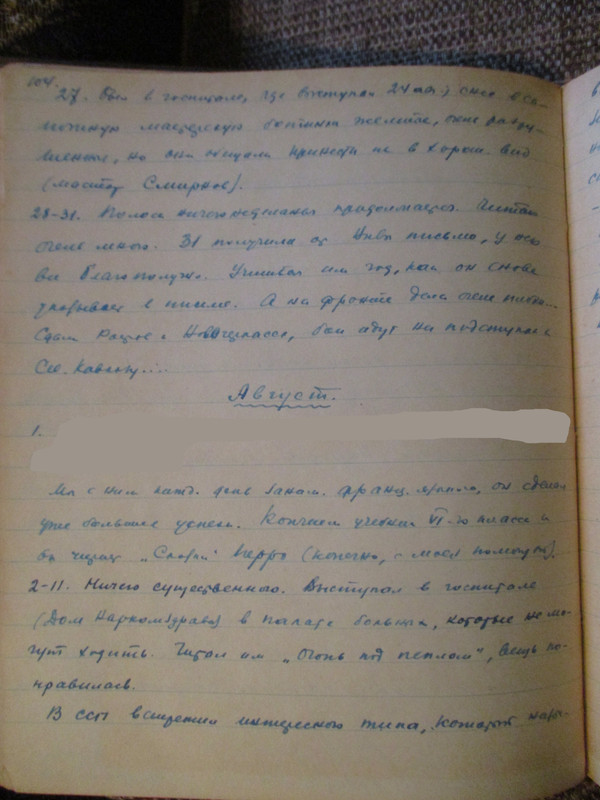 104.
27. Был в госпитале, где выступал 24 мая; снес в са-
пожную мастерскую ботинки
но они обещали принести их в хорош. вид
(мастер Смирнов).
28-31. Полоса ничегонеделанья продолжается. Читаю
очень много. 31 получила от письмо, у них
все благополучно. им год, как он снова
указывает в письме. А на фронте дела очень плохи...
Сдали Ростов и Новочеркасск, бои идут на подступах к
Сев. Кавказу...
Август.
1.
Мы с ним кажд. день заним. франц. языком, он сделал
уже большие успехи. Кончаем учебник VI-го класса и
он читает „Сказки" Перро (конечно, с моей помощью).
2-11. Ничего существенного. Выступал в госпитале
(Дом Наркомздрава) в палате больных, которые не мо-
гут ходить. Читал им „Огонь под пеплом", вещь по-
нравилась.
В ССП встретил интересного типа, который